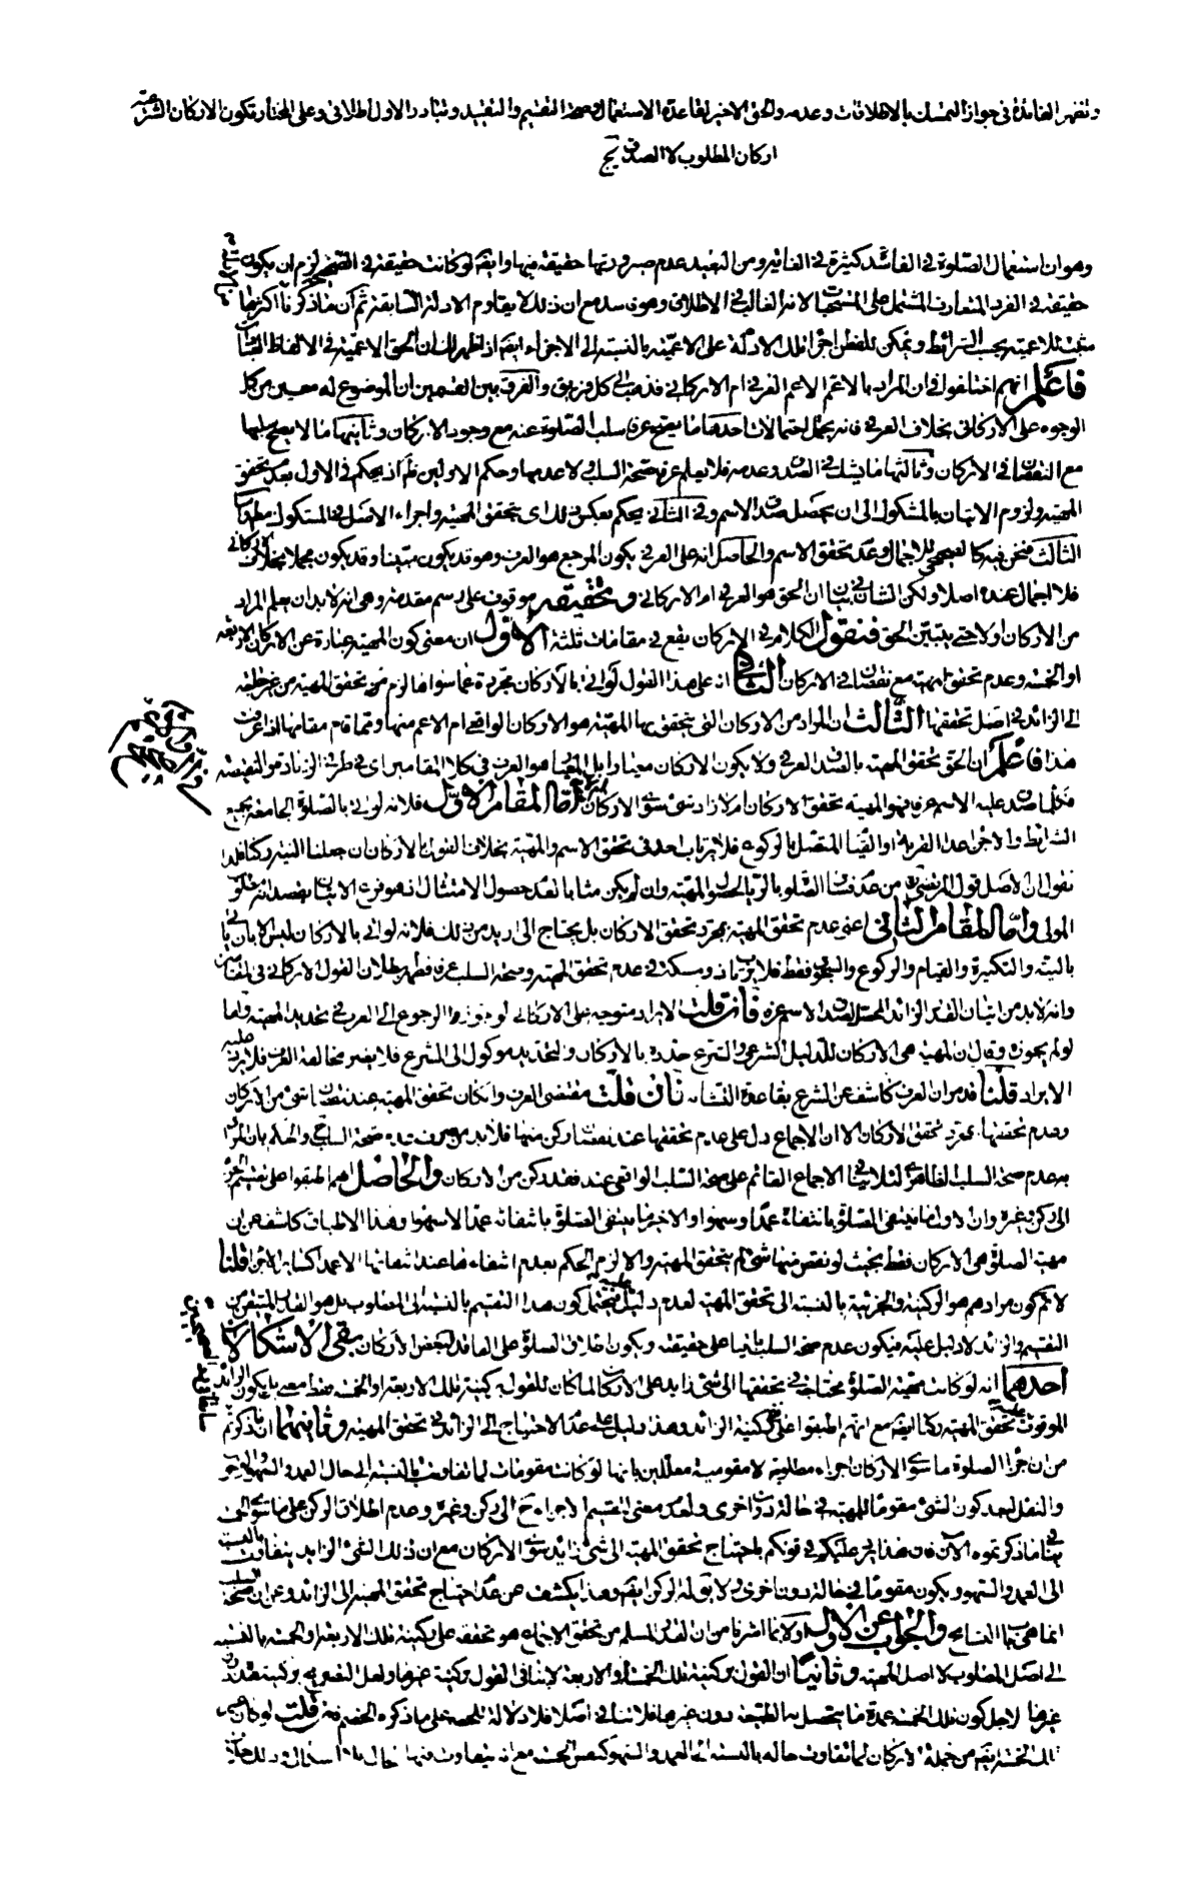 وتظهر الفائدة في جواز التمسك بالاطلاقات وعدمه والحق الاخير لقاعدة الاستعمال وصحة التقسيم والتقييد وتبادر الاول اطلاقي وعلى المختار تكون الاركان الشرعية
اركان المطلوب لا الصدق
وهو ان استعمال الصلوة في الفاسد كثيرة في الغاية ومن البعيد عدم صيرورتها حقيقة فيها وايضا لو كانت حقيقة في الصحيح لزم ان يكون
حقيقة في الفرد المتعارف المشتمل على المستحبات لانه الغالب في الاطلاق وهو مع ان ذلك لا يقاوم الادلة السابقة ثم ان ما ذكرنا اكثرها
مثبت للاعمية بحسب الشرائط ويمكن للفطن اجراء تلك الادلة على الاعمية بالنسبة الى الاجزاء ايضا اذا ظهر لك ان الحق الاعمية في الالفاظ
فاعلم انهم اختلفوا في ان المراد بالاعم الاعم العرفي ام الاركاني فذهب الى كل فريق والفرق بين القسمين ان الموضوع له معين من كل
الوجوه على الاركاني بخلاف العرفي فانه يحتمل احتمالات احدها ما يصح عرفا سلب الصلوة عنه مع وجود الاركان وثانيها ما لا يصح سلبها
مع النقصان في الاركان وثالثها ما يشك في الصدق وعدمه فلا يعلم عرفا صحة السلب لا عدمها وحكم الاولين ظاهر اذ يحكم في الاول بعدم تحقق
المهية ولزوم الاتيان بالمشكوك الى ان يحصل صدق الاسم وفي الثاني يحكم بعكس ذلك اي بتحقق المهية واجراء الاصل في المشكوك
الثالث فنحن فيه كالصحيحي للاجمال وعدم تحقق الاسم والحاصل انه على العرفي يكون المرجع هو العرف وهو قد يكون مبينا وقد يكون مجملا بخلاف الاركاني
فلا اجمال عنده اصلا ولكن الشان في بيان ان الحق هو العرفي ام الاركاني وتحقيقه موقوف على رسم مقدمة وهي انه لا بد ان يعلم المراد
من الاركان اولا حتى يتبين الحق فنقول الكلام في الاركان يقع في مقامات ثلثة الاول ان معنى كون المهية عبارة عن الاركان الاربعة
او الخمسة وعدم تحقق المهية مع نقصان في الاركان الثاني انه على هذا القول لو اتى بالاركان مجردة عما سواها لزم تحقق المهية من غير حاجة
الى الزائد في اصل تحققها الثالث ان المراد من الاركان التي يتحقق بها المهية هو الاركان الواقعي ام الاعم منها وما قام مقامها اذا عرفت
هذا فاعلم ان الحق تحقق المهية بالصدق العرفي ولا يكون الاركان معيارا بل المعيار هو العرف في كلا المقامين اي في طرفي الزيادة والنقيصة
فكلما صدق عليه الاسم عرفا فهو المهية تحقق الاركان ام لا زاد شيء سوى الاركان ام لا اما المقام الاول فلانه لو اتى بالصلوة الجامعة بجميع
الشرائط والاجزاء عدا القربة او القيام المتصل بالركوع فلا يرتاب احد في تحقق الاسم والمهية بخلاف القول بالاركان ان جعلنا النية ركنا
نقول ان الاصل قول المرتضى من عدم فساد الصلوة بالرياء لحصول المهية وان لم يكن مثابا لعدم حصول الامتثال اذ هو فرع الاتيان بقصد
المولى واما المقام الثاني اعني عدم تحقق المهية بمجرد تحقق الاركان بل يحتاج الى ازيد من ذلك فلانه لو اتى بالاركان ليس الا بان ياتي
بالنية والتكبيرة والقيام والركوع والسجود فقط فلا يرتاب ذو مسكة في عدم تحقق المهية وصحة السلب عرفا فظهر بطلان القول الاركاني في المقامين
وانه لا بد من اتيان القدر الزائد المحصل لصدق الاسم عرفا فان قلت الايراد متوجه على الاركاني لو جوز الرجوع الى العرف في تحديد المهية واما
لو لم يجوزه وقال ان المهية هي الاركان للدليل الشرعي والشرع حدده بالاركان والتحديد موكول الى الشرع فلا يضر مخالفة العرف فلا يرد عليه
الايراد قلنا قد مر ان العرف كاشف عن الشرع بقاعدة التشابه فان قلت مقتضى العرف وان كان تحقق المهية عند نقصان شيء من الاركان
وعدم تحققها بمجرد تحقق الاركان الا ان الاجماع دل على عدم تحققها عند نقصان ركن منها فلا بد من صحة السلب والحكم بان المراد
به عدم صحة السلب الظاهري لئلا ينافي الاجماع القائم على صحة السلب الواقعي عند فقد ركن من الاركان والحاصل انهم اطبقوا على تقسيم الجزء
الى ركن وغيره وان الاول ما ينتفي الصلوة بانتفائه عمدا وسهوا والاخير ما ينتفي الصلوة بانتفائه عمدا لا سهوا وهذا الاطباق كاشف عن ان
مهية الصلوة هي الاركان فقط بحيث لو نقص منها شيء لم يتحقق المهية والا لزم الحكم بعدم انتفائها عند انتفائها الا عمدا كسائر الاجزاء قلنا
لا نم كون مرادهم هو الركنية والجزئية بالنسبة الى تحقق المهية لعدم دليل عليه فيحتمل كون هذا التقسيم بالنسبة الى المطلوب بل هو القدر المتيقن من
التقسيم والزائد لا دليل عليه فيكون عدم صحة السلب باقيا على حقيقته ويكون اطلاق الصلوة على الفاقد لبعض الاركان بقي الاشكالان
احدهما انه لو كانت مهية الصلوة محتاجة في تحققها الى شيء زايد على الاركان لما كان للقول بركنية تلك الاربعة او الخمسة فقط معنى بل يكون الزائد
الموقوف عليه تحقق المهية ركنا ايضا مع انهم اطبقوا على نفي ركنية الزائد وهذا دليل على عدم الاحتياج الى الزائد في تحقق المهية وثانيهما ان ما ذكرتم
من ان اجزاء الصلوة ما سوى الاركان اجزاء مطلوبية لا مقومية معللين بانها لو كانت مقومات لما تفاوت بالنسبة الى حال العمد والسهو
والنقل لبعد كون الشيء مقوما للمهية في حالة دون اخرى ولعدم معنى لتقسيم الاجزاء ح الى ركن وغيره وعدم اطلاق الركن على ما سوى
ينافي ما ذكرتموه الآن فان هذا يجر عليكم في قولكم باحتياج تحقق المهية الى شيء زايد سوى الاركان مع ان ذلك الشيء الزايد يتفاوت بالنسبة
الى العمد والسهو ويكون مقوما في حالة دون اخرى ولا يق له الركن ايضا وهذا يكشف عن عدم احتياج تحقق المهية الى الزائد وعن ان صحة السلب
انما هي والجواب عن الاول اولا بما اشرنا من ان القدر المسلم من تحقق الاجماع هو تحققه على ركنية تلك الاربعة والخمسة بالنسبة
الى اصل المطلوب لا اصل المهية وثانيا ان القول بركنية تلك الخمسة او الاربعة لا ينافي القول بركنية غيرها ولعل التصريح بركنية هذه دون
غيرها لاجل كون تلك الخمسة عمدة ما يتحصل به الطبيعة دون غيرها فلا تنافي اصلا فلا دلالة للحصر على ما ذكره الخصم فان قلت لو كان غير
تلك الخمسة ايضا من جملة الاركان لما تفاوت حاله بالنسبة الى العمد والسهو كنفس الخمسة مع انه يتفاوت فيها